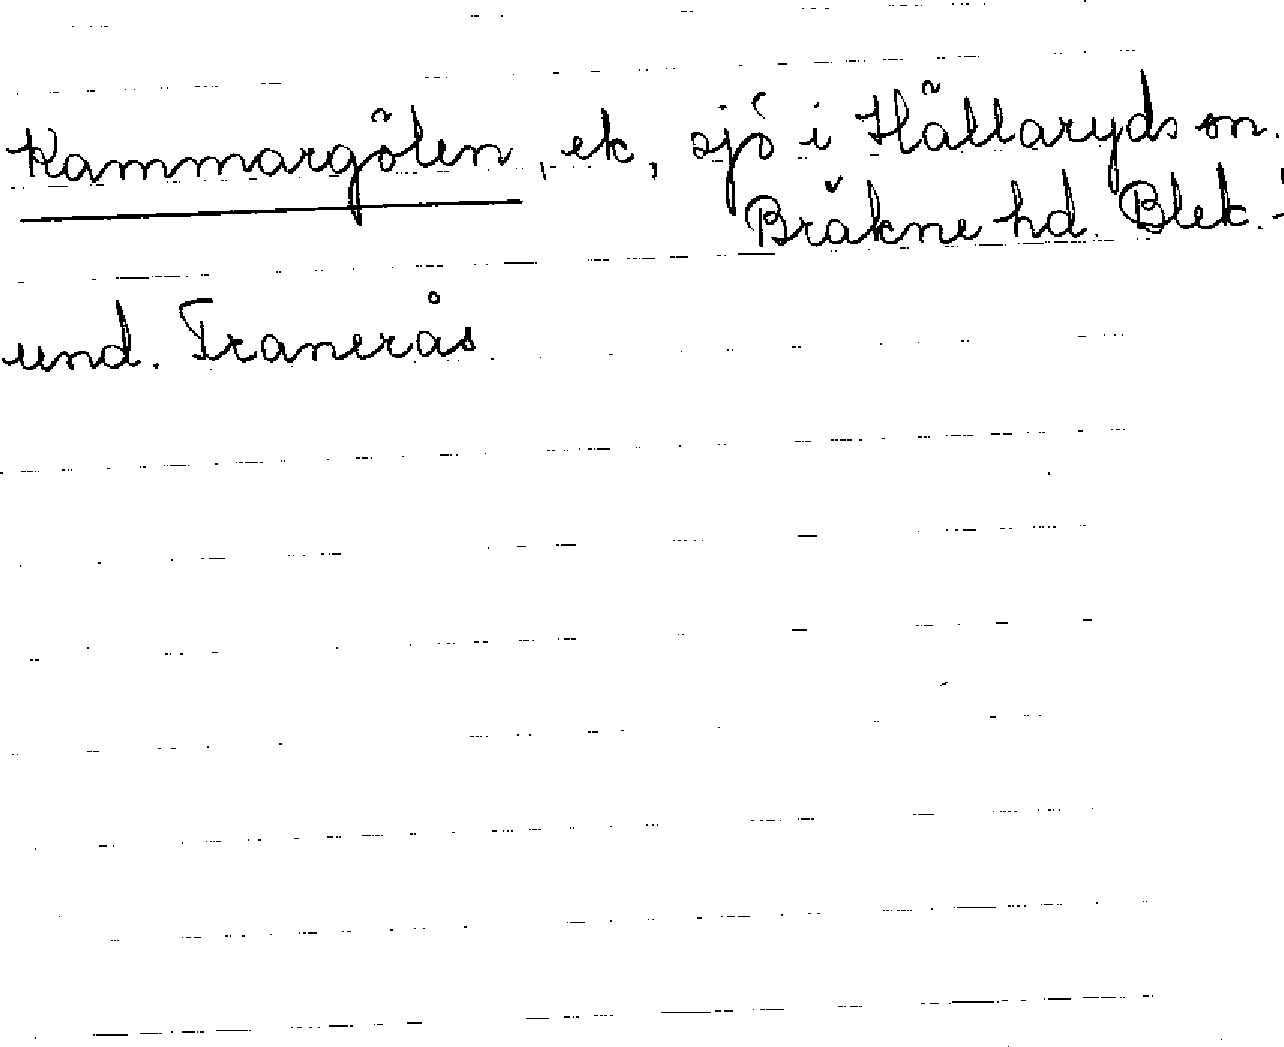 Kammargölen, ek, sjö i Hällaryds sn.
Bräkne hd. Blek.
und. Tranerås